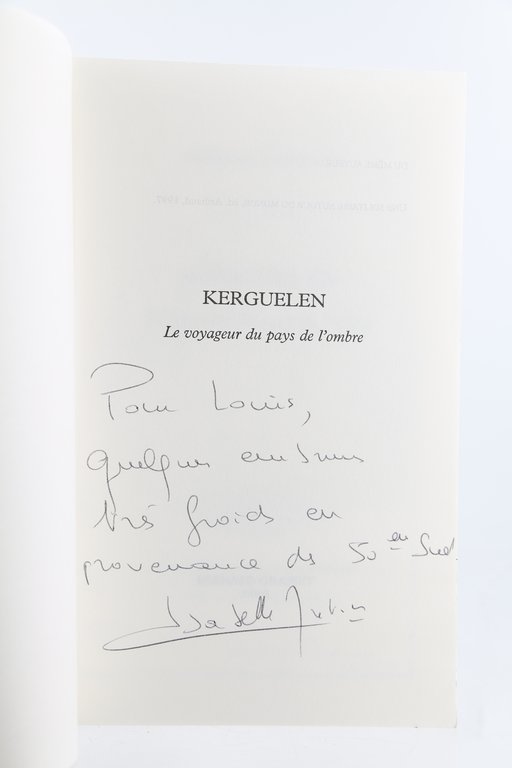 KERGUELEN
Le voyageur du pays de l'ombre
Pour Louis,
quelques embruns
très froids en
provenance des 50en Sud
Isabelle Autissier